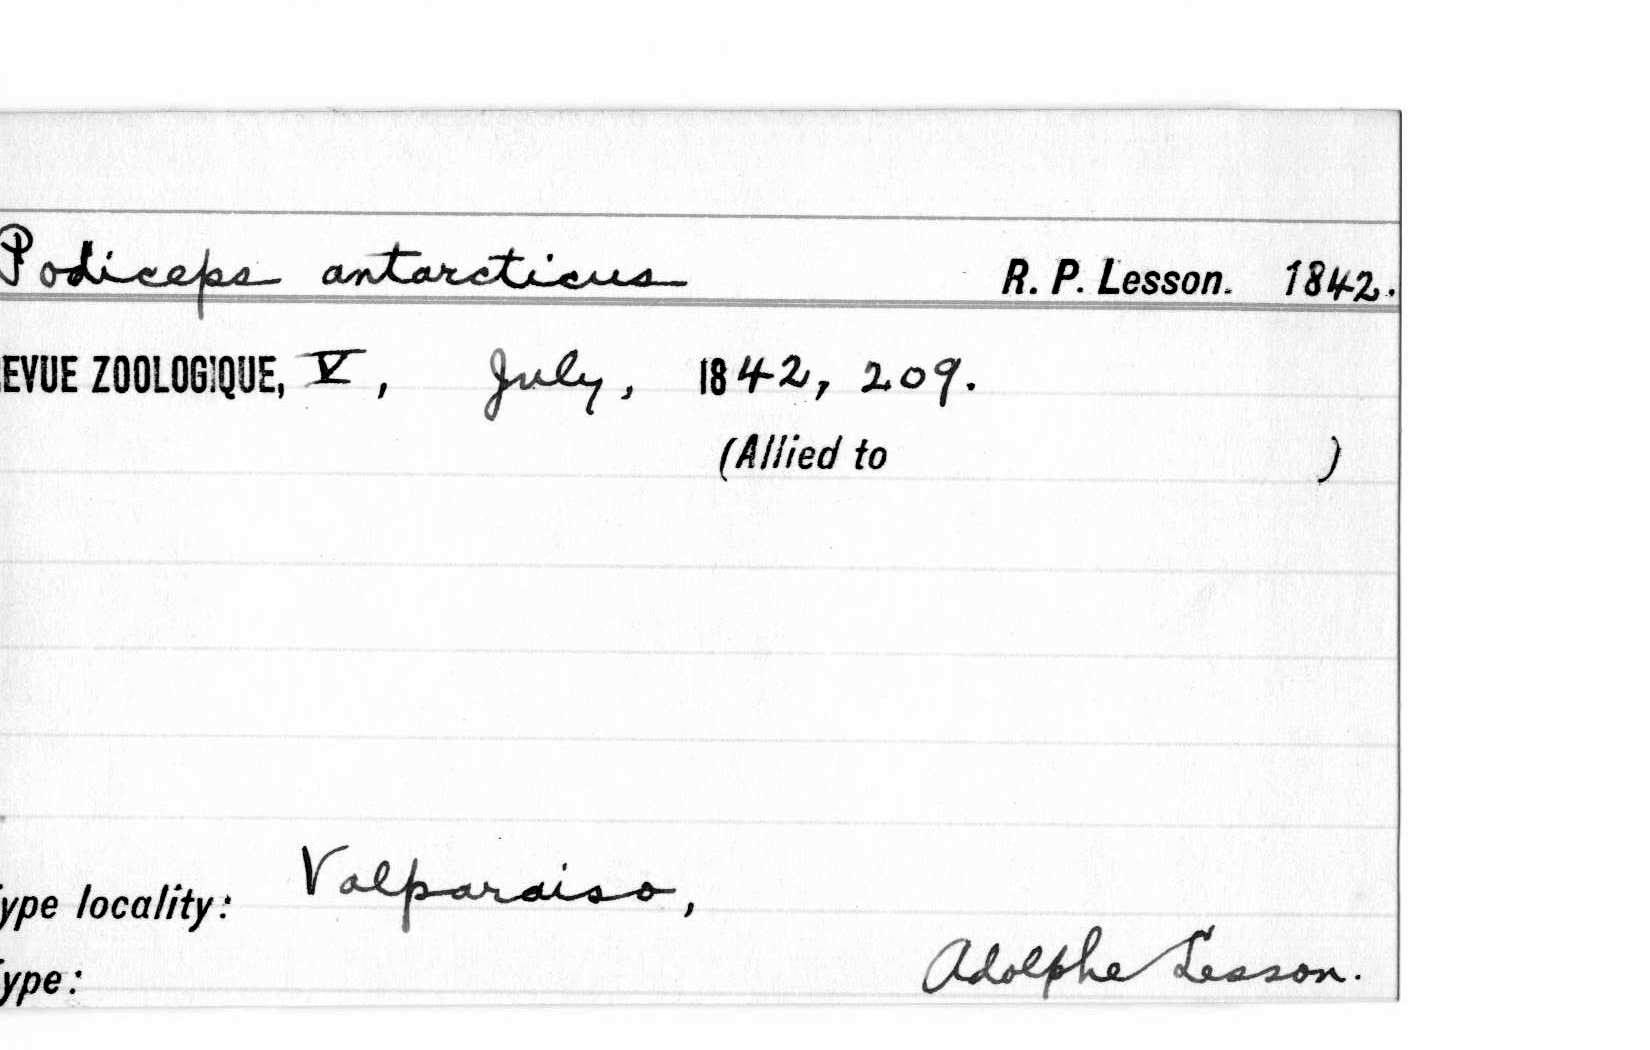 Podiceps antarcticus R. P. Lesson. 1842.
EVUE ZOOLOGIQUE, V, July, 1842, 209.
(Allied to )
ype locality: Valparaiso,
ype: Adolphe Lesson.